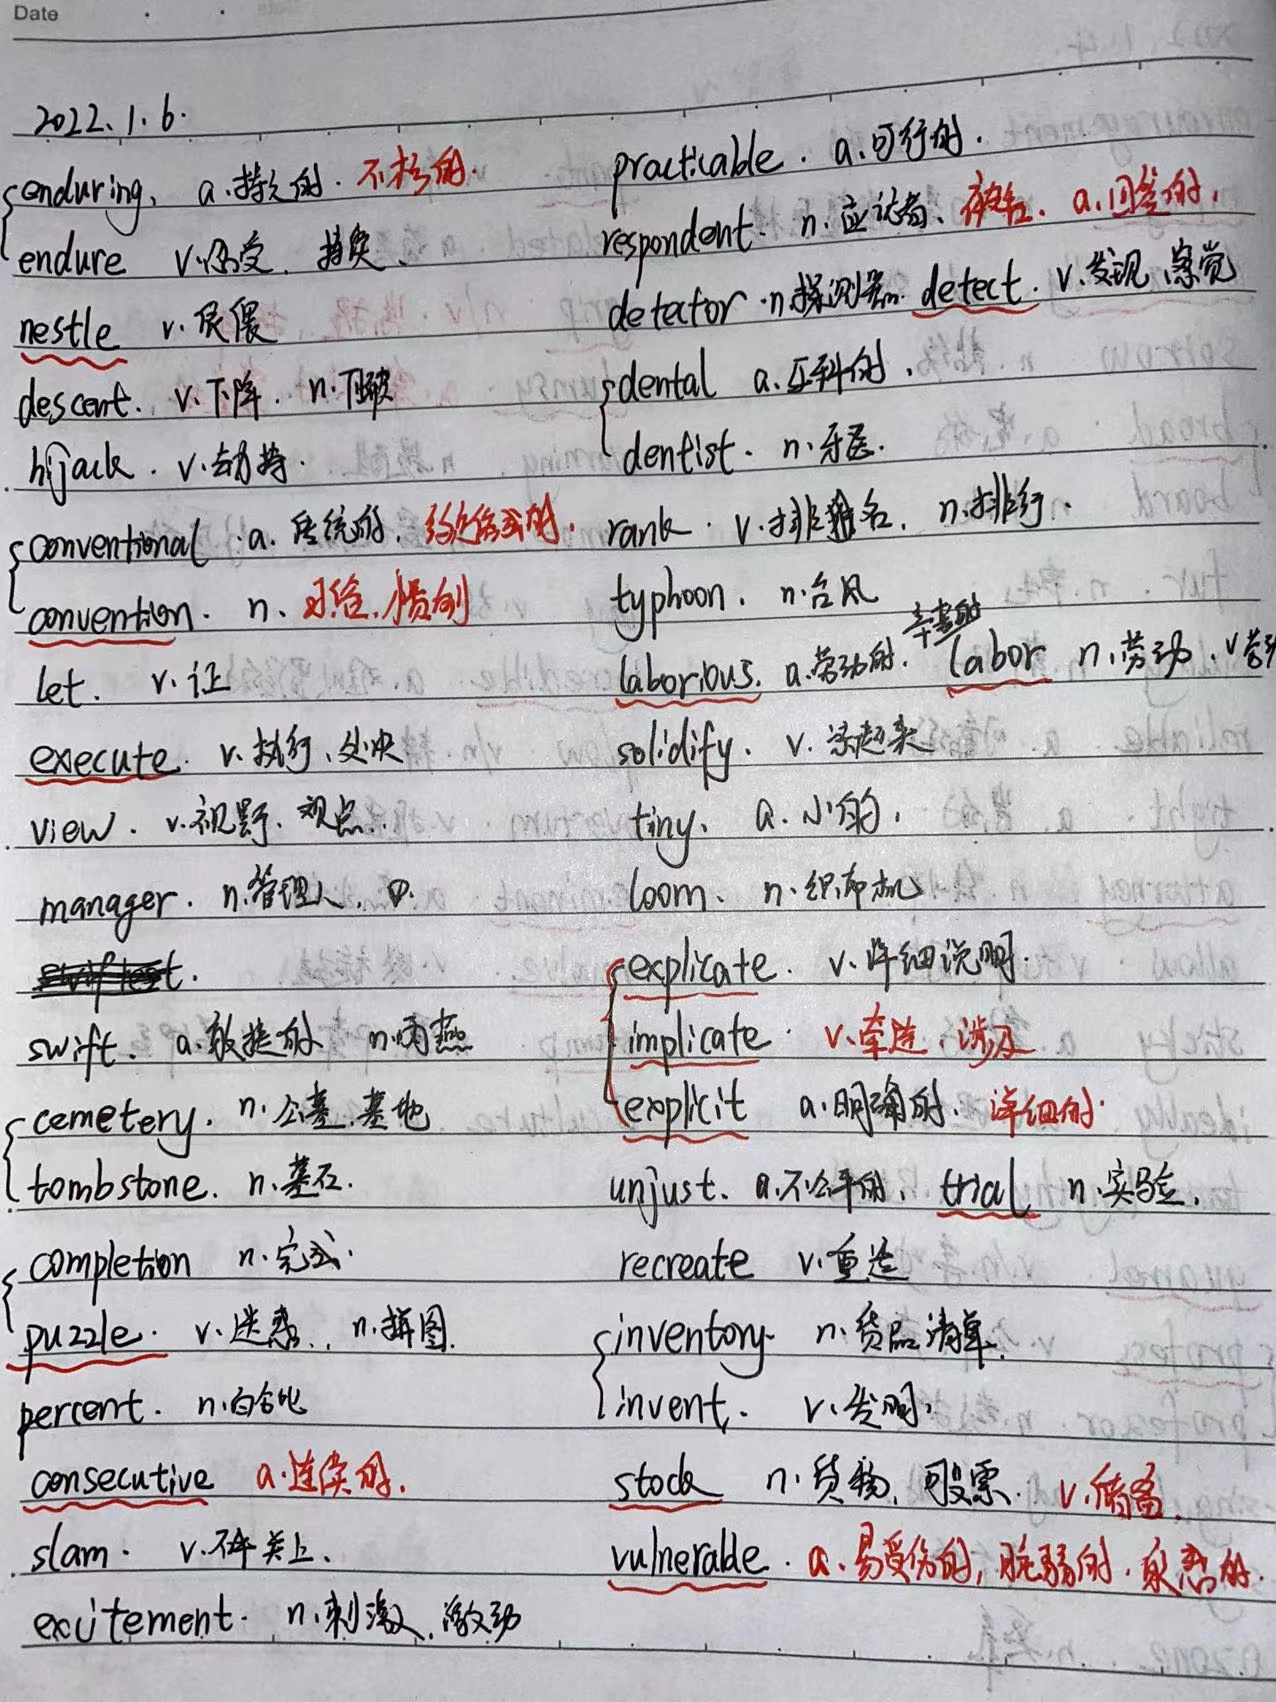 Date
2022.1.6.
enduring, a.持久的. 不朽的.
endure v.忍受. 持续.
nestle v.依偎
descent. v.下降. n.下坡
hijack. v.劫持.
conventional .a. 传统的. 约定俗成的.
convention. n. 习俗.惯例
let. v.让
execute. v.执行、处决
view. v.视野、观点.
manager. n.管理人.
swift. a.敏捷的 n.雨燕
cemetery. n.公墓.墓地
tombstone. n.墓石.
completion n.完成.
puzzle. v.迷惑., n.拼图.
percent. n.百分比
consecutive a.连续的.
slam. v.砰关上.
excitement. n.刺激.激动
practicable. a.可行的.
respondent. n.应试者、被告. a.回答的.
detector .n.探测器. detect. v.发现.察觉
dental a.牙科的.
dentist. n.牙医.
rank. v.排名. n.排行.
typhoon. n.台风
laborious. a.劳动的. 辛苦的 labor n.劳动. v劳动
solidify. v.
tiny. a.小的.
loom. n.织布机
explicate. v.详细说明.
implicate. v.牵连.涉及
explicit a.明确的. 详细的.
unjust. a.不公平的. trial n.实验.
recreate v.重造
inventory. n.货品清单.
invent. v.发明.
stock n.货物. 股票. v.储备.
vulnerable. a.易受伤的,脆弱的.